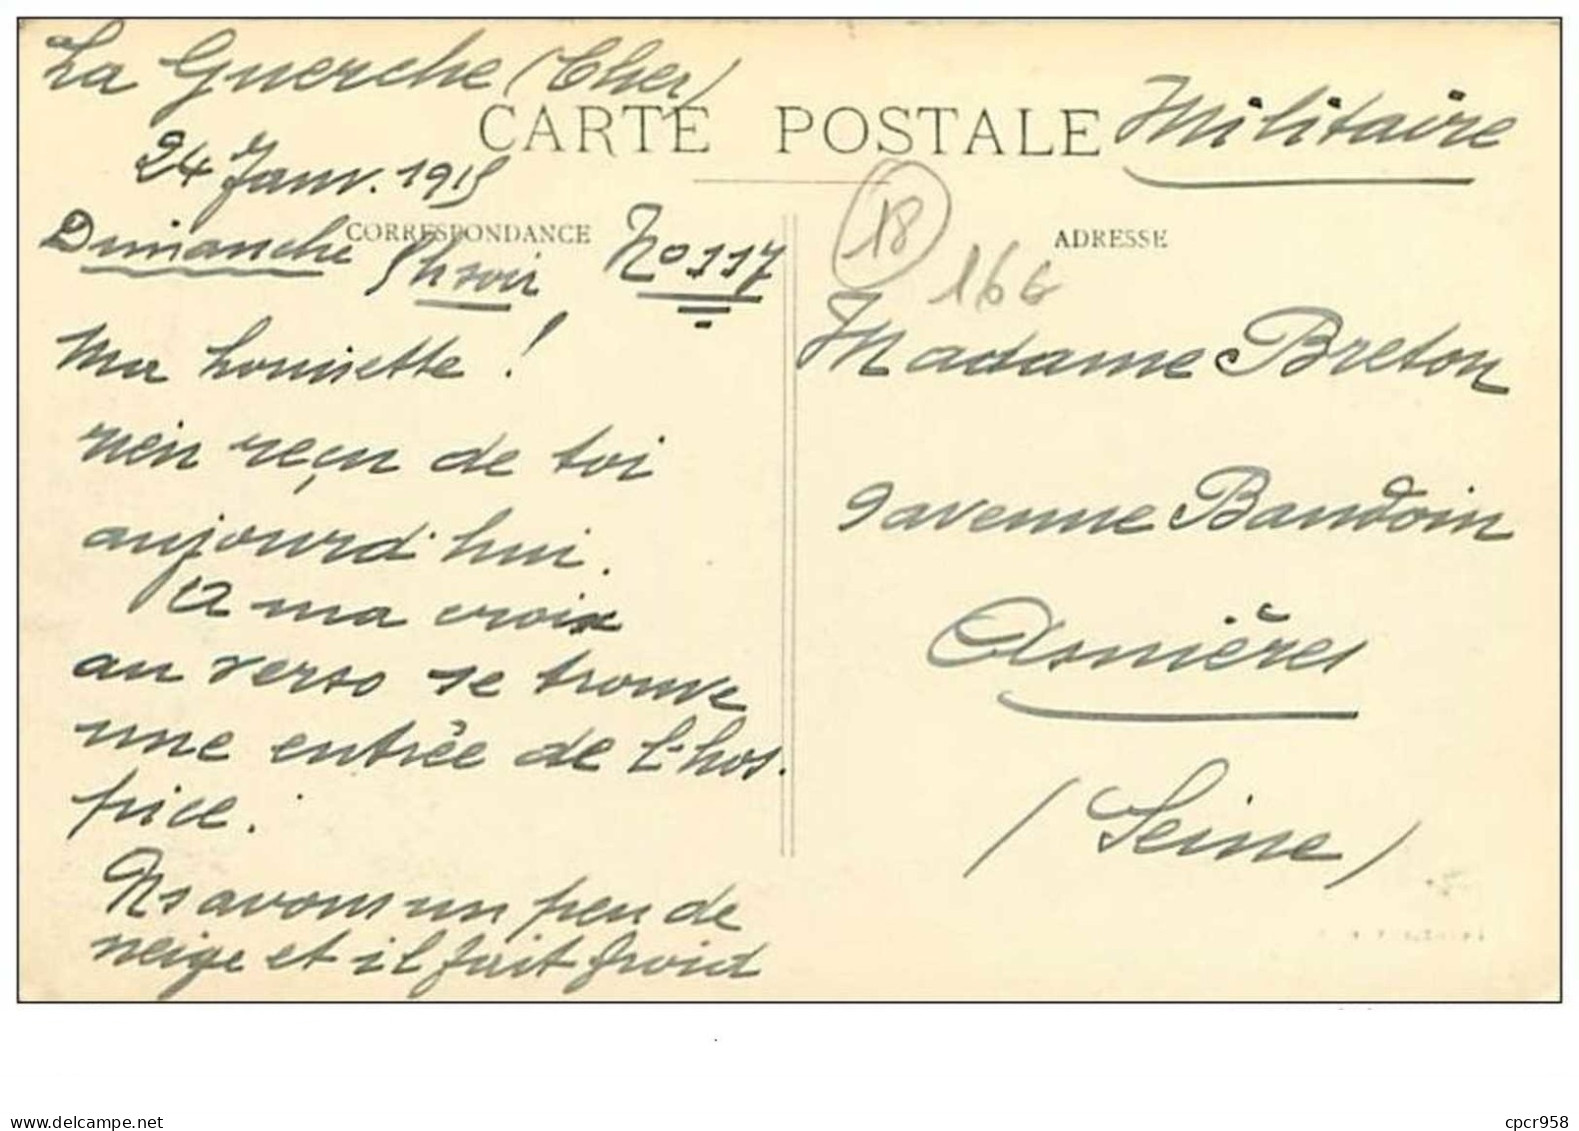 La Guerche (Cher)
24 Janv. 1915
CARTE POSTALE
Militaire
Dimanche
CORRESPONDANCE
h soir
No 117
18
166
ADRESSE
Ma Louisette !
rien reçu de toi
aujourd'hui.
A ma croix
au verso se trouve
une entrée de l'hos-
pice.
Ns avons un peu de
neige et il fait froid
Madame Breton
9 avenue Baudoin
Asnières
(Seine)
www.delcampe.net
cpcr958